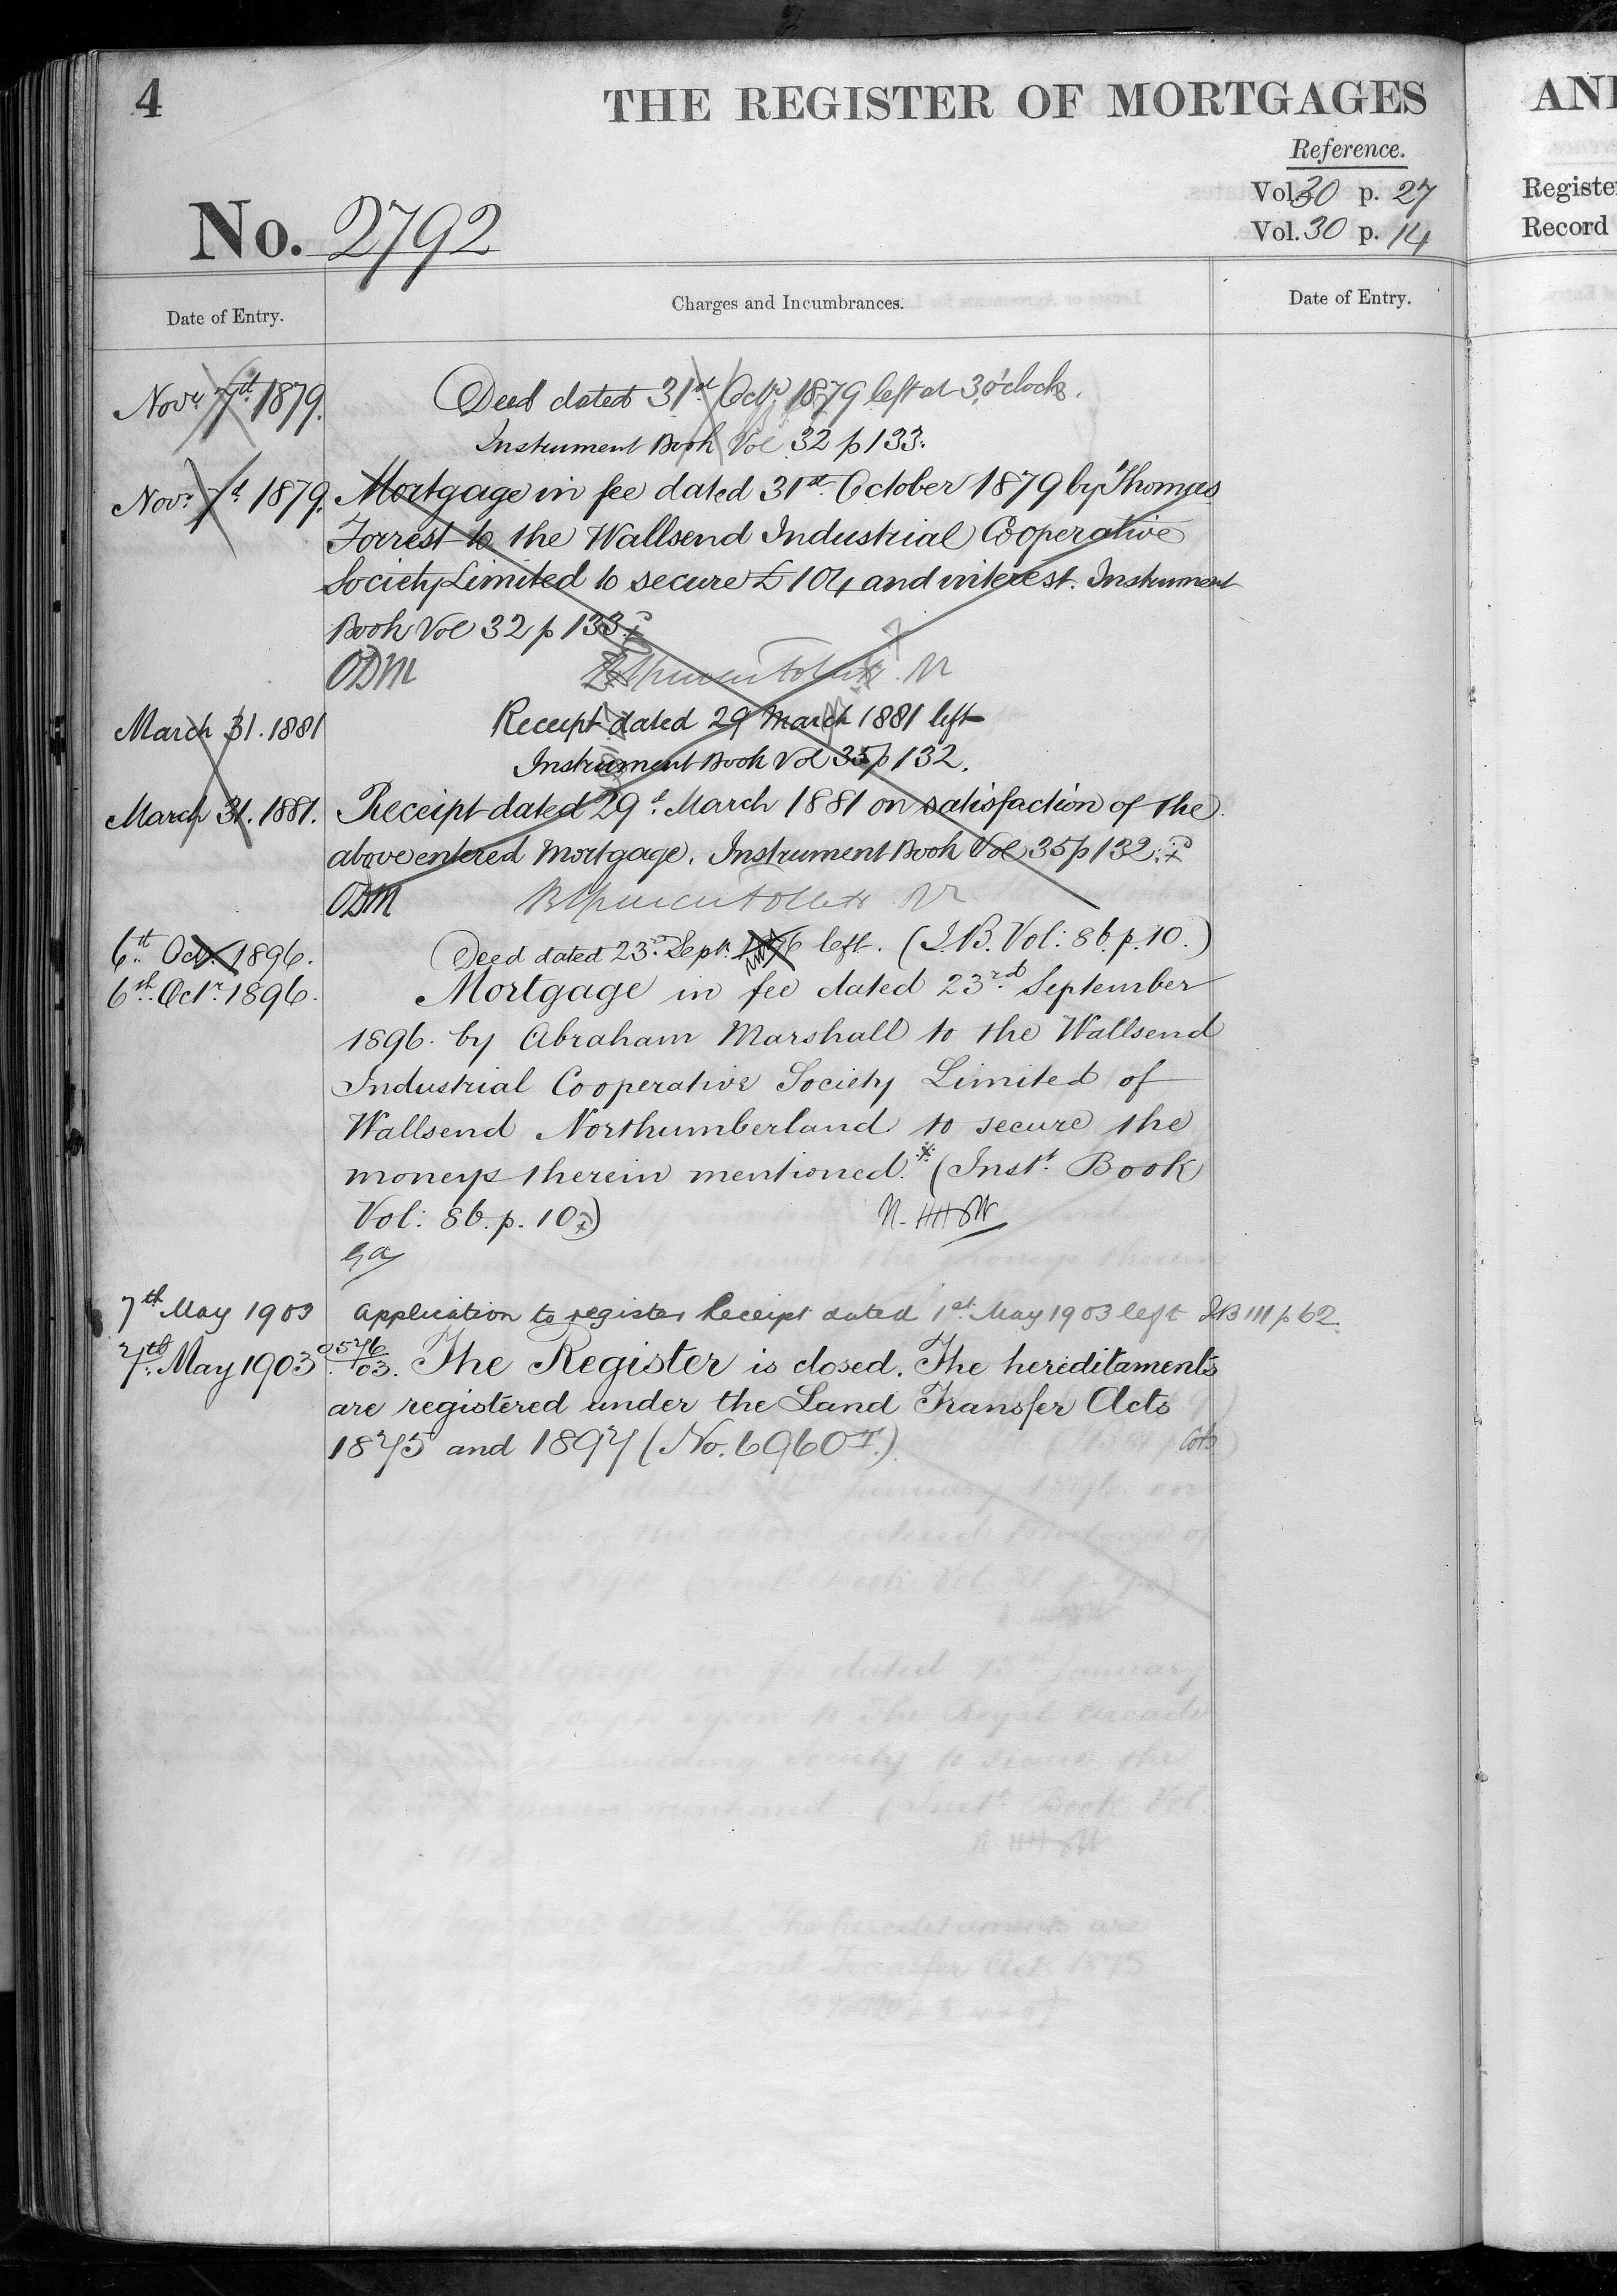 4
THE REGISTER OF MORTGAGES
Reference.
Vol. 30 p. 27
Vol. 30 p. 14
No. 2792
Date of Entry.
Charges and Incumbrances.
Date of Entry.
Novr 7th 1879.
Deed dated 31st Octr 1879 left at 3 o'clock.
Instrument Book Vol 32 p 133.
Novr 7th 1879.
Mortgage in fee dated 31st October 1879 by Thomas
Forrest to the Wallsend Industrial Cooperative
Society Limited to secure £104 and interest. Instrument
Book Vol 32 p 133.
ODM
March 31. 1881
Receipt dated 29 March 1881 left
Instrument Book Vol 35 p 132.
March 31. 1881.
Receipt dated 29th March 1881 on satisfaction of the
above entered Mortgage. Instrument Book Vol 35 p 132.
ODM
6th Octr 1896.
Deed dated 23rd Sept. 1896 left. (I.B. Vol: 86. p. 10.)
6th Octr 1896.
Mortgage in fee dated 23rd September
1896. by Abraham Marshall to the Wallsend
Industrial Cooperative Society Limited of
Wallsend Northumberland to secure the
moneys therein mentioned. (Inst. Book
Vol: 86. p. 10.)
7th May 1903
Application to register Receipt dated 1st May 1903 left IB 111 p 62.
7th May 1903
0576/03. The Register is closed. The hereditaments
are registered under the Land Transfer Acts
1875 and 1897 (No. 6960 I.)
AND
Register
Record